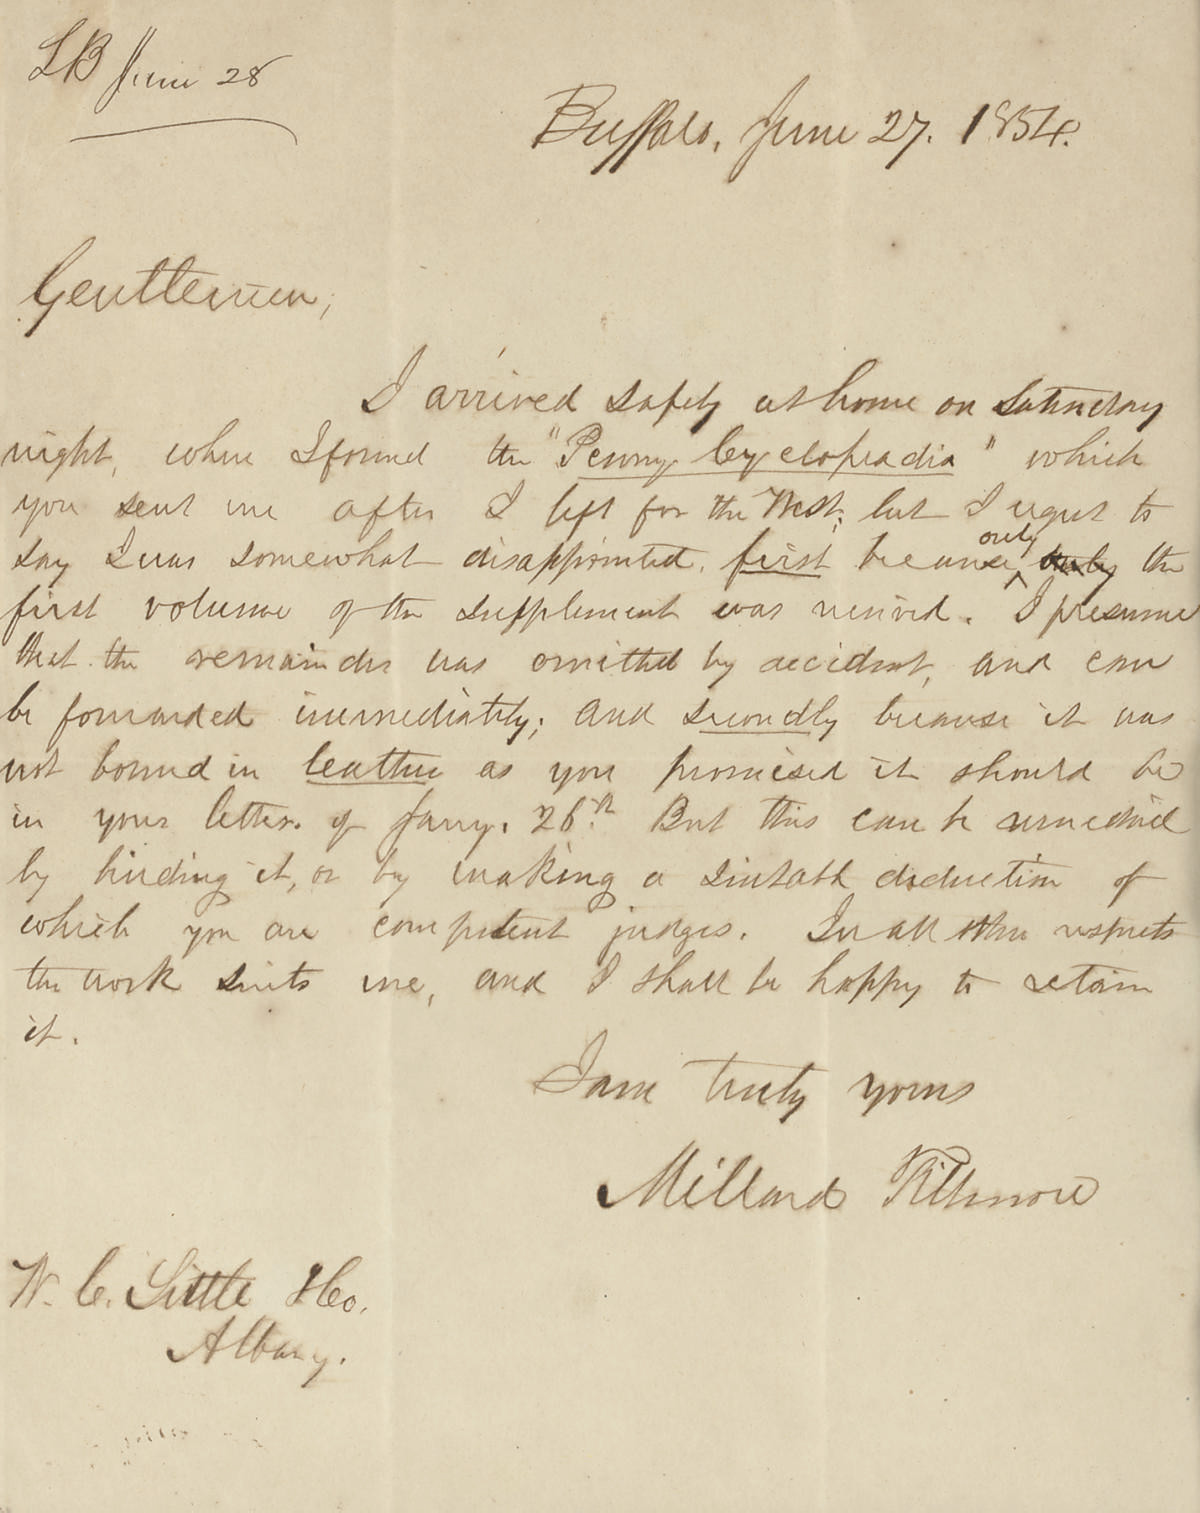 LB June 28
Buffalo, June 27. 1854.
Gentlemen,
I arrived safely at home on Saturday
night, where I found the "Penny Cyclopaedia" which
you sent me after I left for the West; but I regret to
say I was somewhat disappointed. first because, only the
first volume of the supplement was received. I presume
that the remainder was omitted by accident, and can
be forwarded immediately; and secondly because it was
not bound in leather as you promised it should be
in your letter of Jany. 26th. But this can be remedied
by binding it, or by making a suitable deduction of
which you are competent judges. In all other respects
the work suits me, and I shall be happy to retain
it.
I am truly yours
Millard Fillmore
W. C. Little & Co.
Albany.